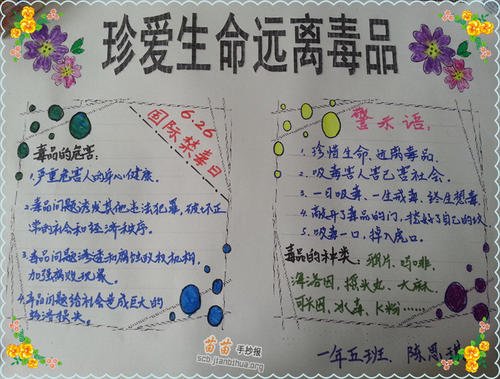 珍爱生命远离毒品
6.26
国际禁毒日
毒品的危害:
1.严重危害人的身心健康。
2.毒品问题诱发其他违法犯罪,破坏正
常的社会和经济秩序。
3.毒品问题渗透和腐蚀政权机构,
加强腐败现象。
4.毒品问题给社会造成巨大的
经济损失。
警示语:
1.珍惜生命、远离毒品。
2.吸毒害人害己害社会。
3.一日吸毒、一生戒毒、终生想毒。
4.敞开了毒品的门,挖好了自己的坟
5.吸毒一口,掉入虎口。
毒品的种类:鸦片、吗啡、
海洛因、摇头丸、大麻、
可卡因、冰毒、K粉……
一年五班、陈思
苗苗手抄报
scb.jianbihua.org